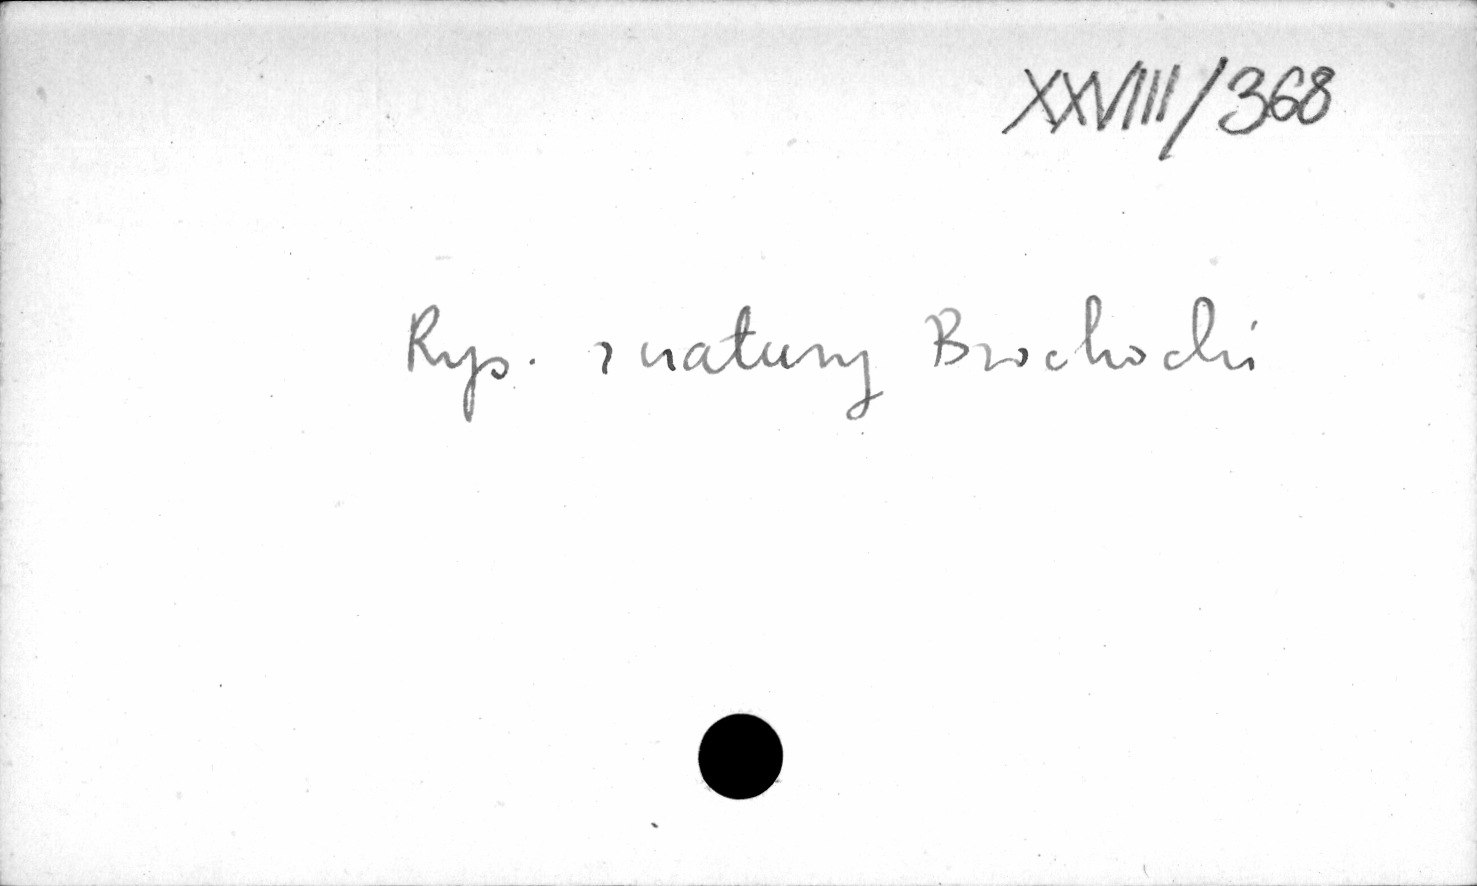 XXVIII/368
Rys. z natury Brochocki